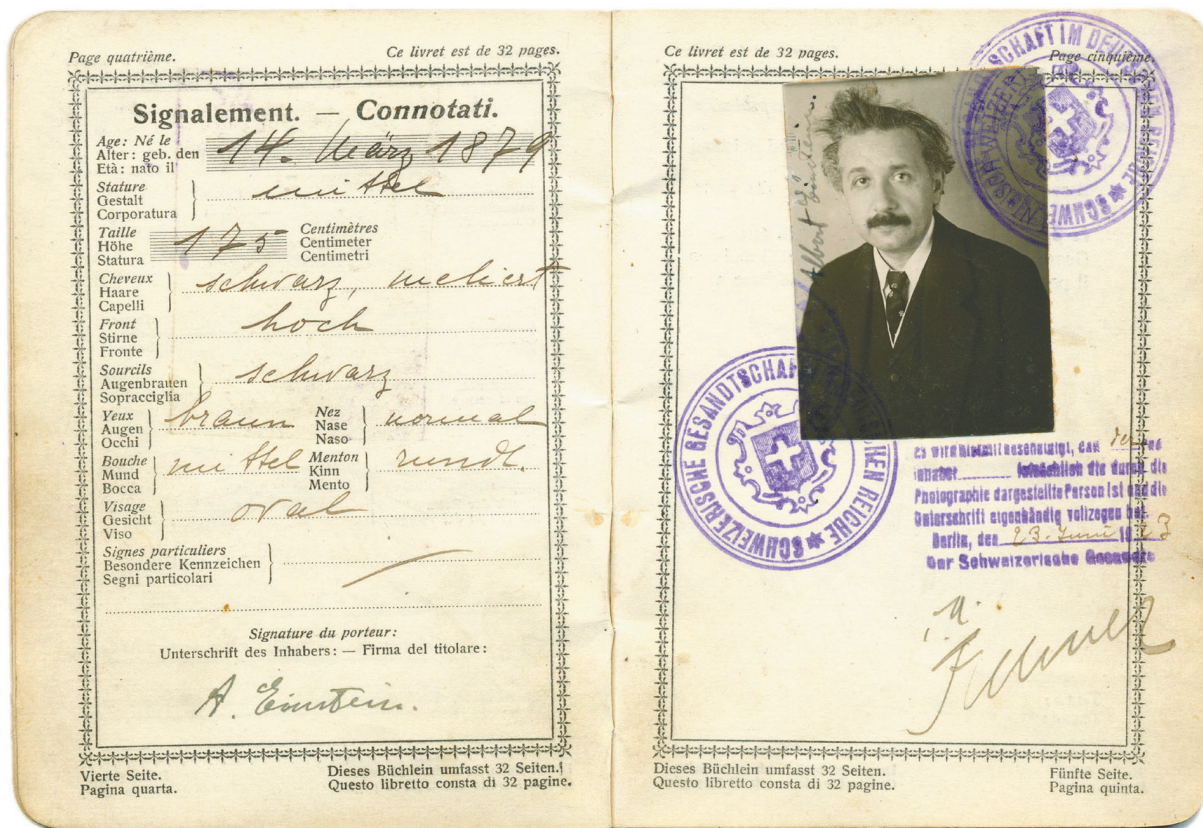 Page quatrième.
Ce livret est de 32 pages.
Signalement. — Connotati.
Age: Né le
Alter: geb. den
Età: nato il
14. März 1879
Stature
Gestalt
Corporatura
mittel
Taille
Höhe
Statura
175
Centimètres
Centimeter
Centimetri
Cheveux
Haare
Capelli
schwarz, meliert
Front
Stirne
Fronte
hoch
Sourcils
Augenbrauen
Sopracciglia
schwarz
Yeux
Augen
Occhi
braun
Nez
Nase
Naso
normal
Bouche
Mund
Bocca
mittel
Menton
Kinn
Mento
rundl.
Visage
Gesicht
Viso
oval
Signes particuliers
Besondere Kennzeichen
Segni particolari
Signature du porteur:
Unterschrift des Inhabers: — Firma del titolare:
A. Einstein.
Vierte Seite.
Pagina quarta.
Dieses Büchlein umfasst 32 Seiten.
Questo libretto consta di 32 pagine.
Ce livret est de 32 pages.
Page cinquième.
Albert Einstein.
SCHWEIZERISCHE GESANDTSCHAFT IM DEUTSCHEN REICHE
SCHWEIZERISCHE GESANDTSCHAFT IM DEUTSCHEN REICHE
Es wird hiermit bescheinigt, dass der
Inhaber tatsächlich die durch die
Photographie dargestellte Person ist und die
Unterschrift eigenhändig vollzogen hat.
Berlin, den 23. Juni 1923
Der Schweizerische Gesandte
Dieses Büchlein umfasst 32 Seiten.
Questo libretto consta di 32 pagine.
Fünfte Seite.
Pagina quinta.